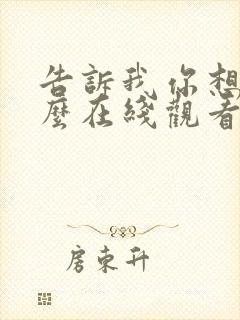 告訴我 你想
麼在綫觀看
房东升